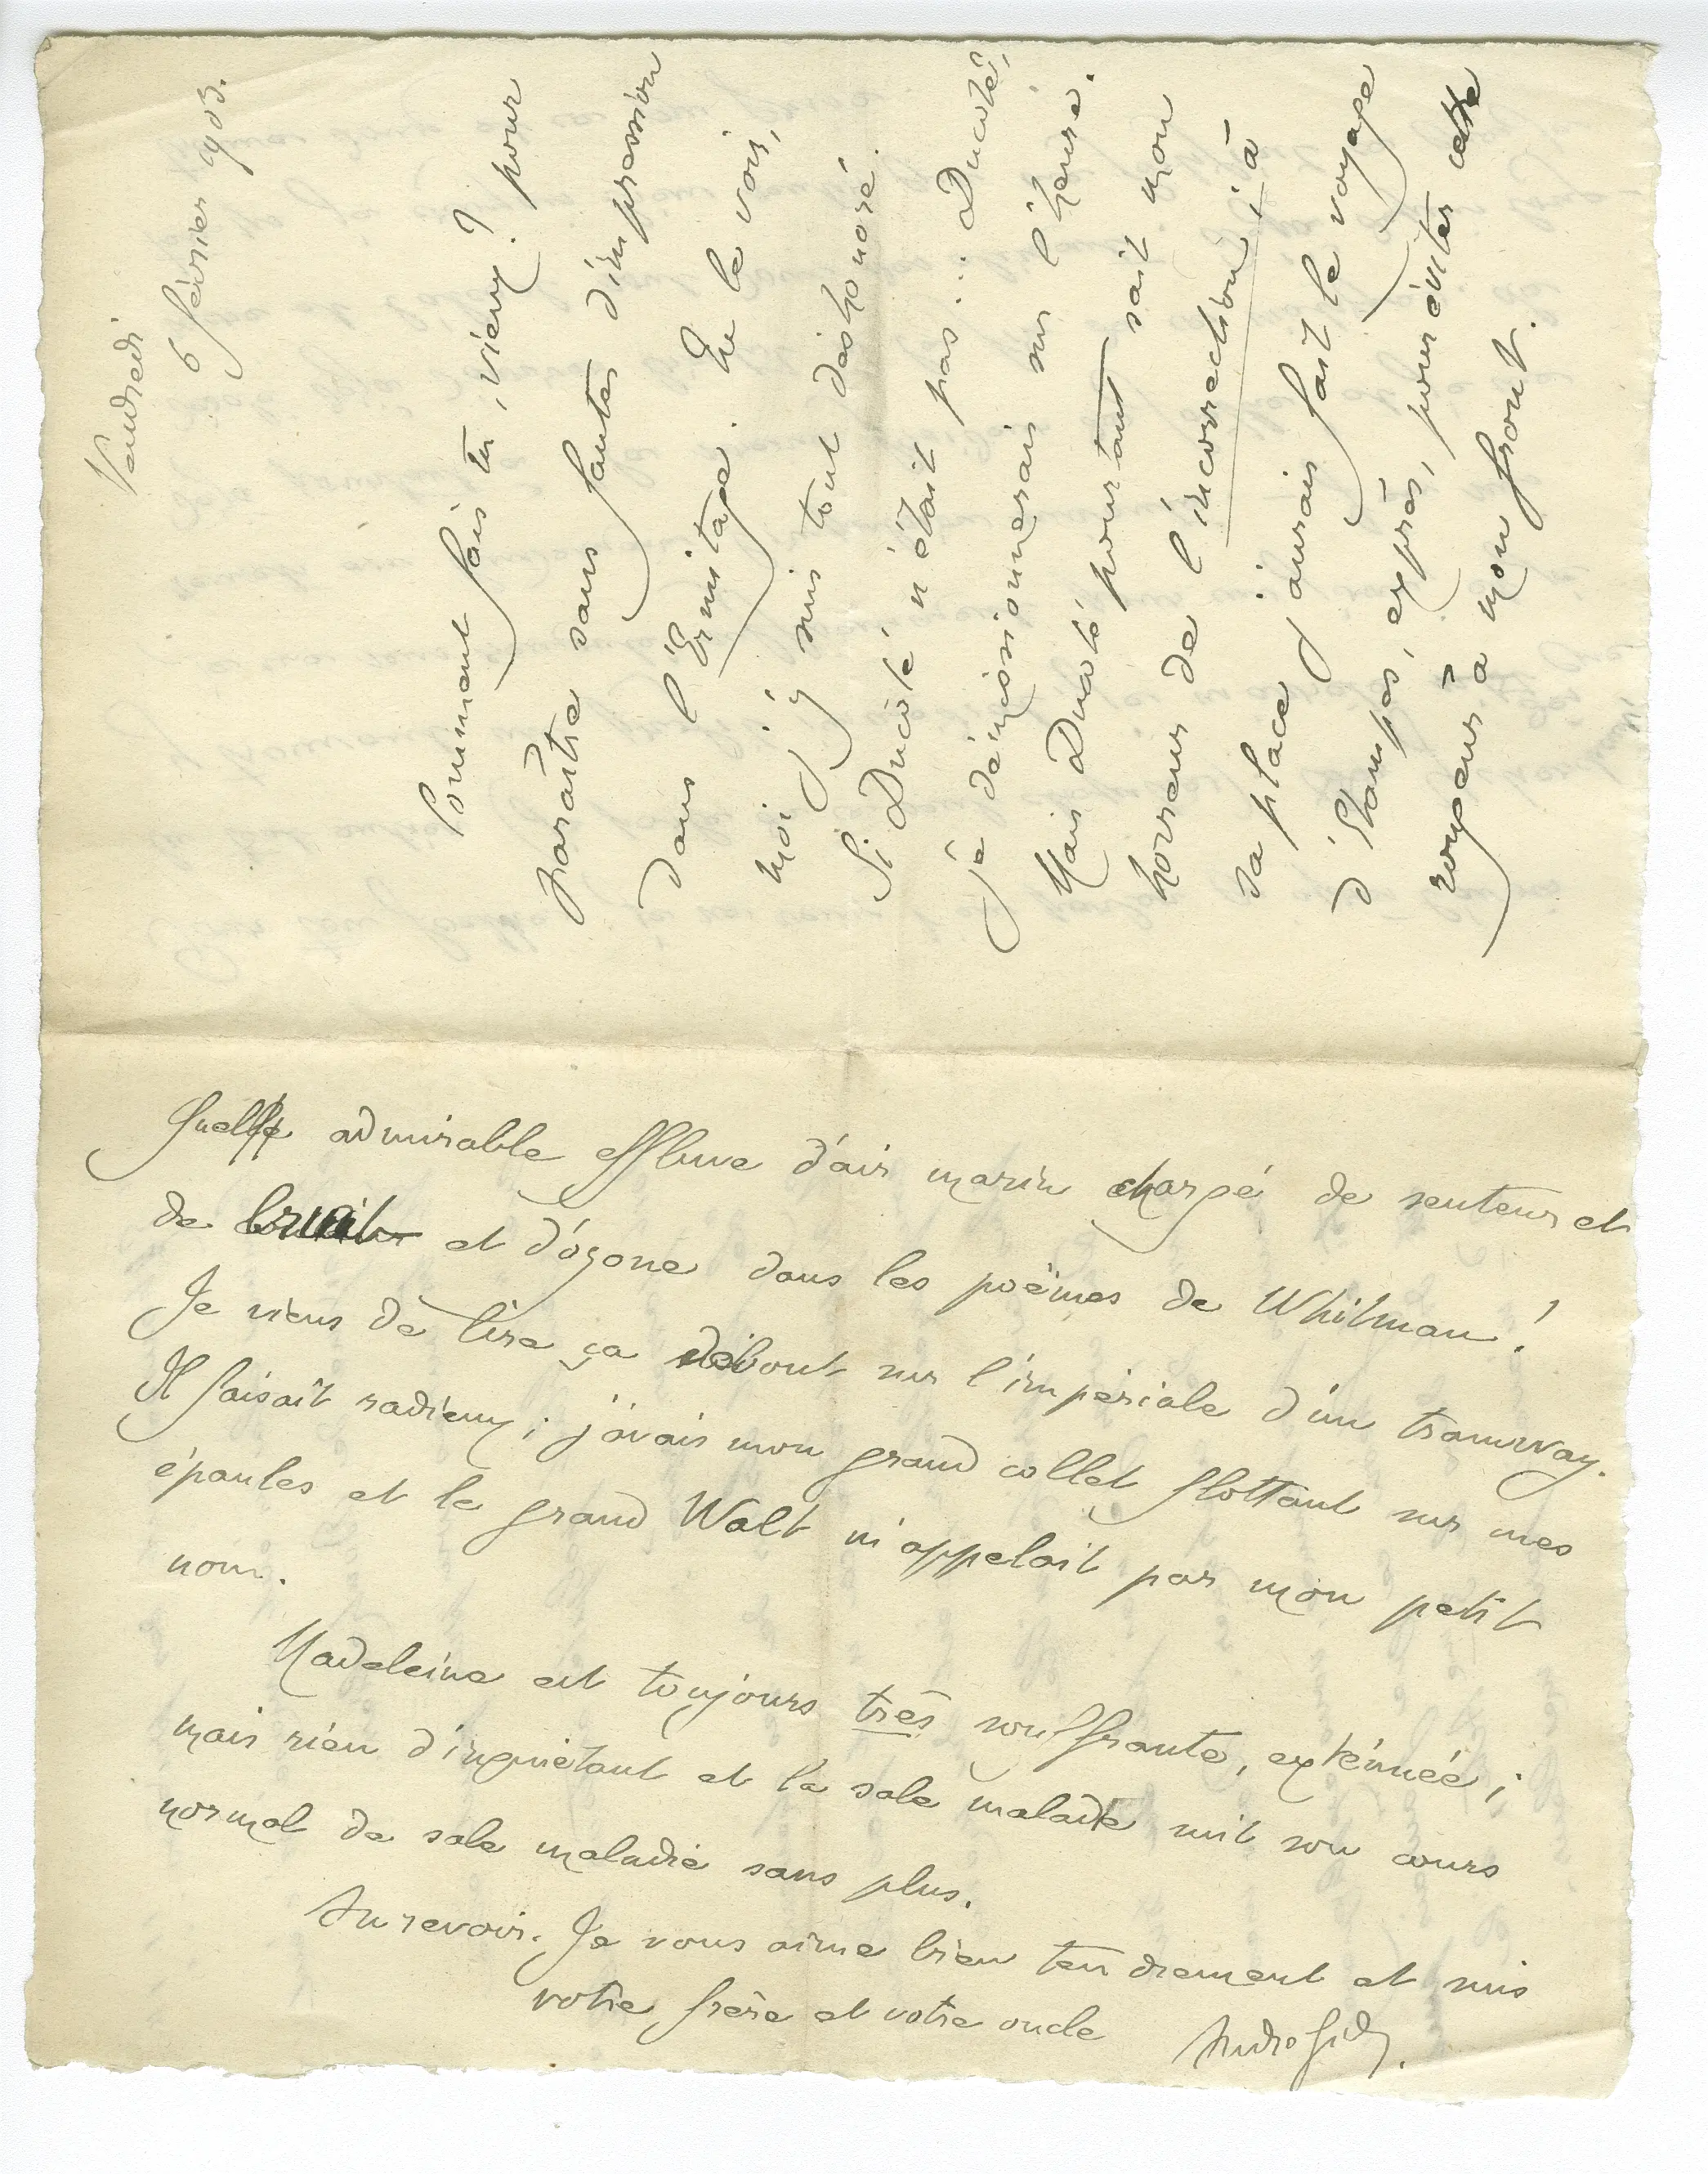 Vendredi
6 février 1903.
Comment fais tu, vieux ? pour
paraître sans fautes d'impression
dans l'Ermitage. Tu le vois,
moi j'y suis tout déshonoré.
Si Ducoté n'était pas... Ducoté,
je démissionnerais sur l'heure.
Mais Ducoté pourtant sait mon
horreur de l'incorrection ; à
sa place j'aurais fait le voyage
d'Etampes, exprès, pour éviter cette
rougeur à mon front.
Quelle admirable effluve d'air marin chargé de senteurs et
de bruit et d'ozone dans les poëmes de Whitman !
Je viens de lire ça debout sur l'impériale d'un tramway.
Il faisait radieux ; j'avais mon grand collet flottant sur mes
épaules et le grand Walt m'appelait par mon petit
nom.
Madeleine est toujours très souffrante, exténuée ;
mais rien d'inquiétant et la sale maladie suit son cours
normal de sale maladie sans plus.
Au revoir. Je vous aime bien tendrement et suis
votre frère et votre oncle
André Gide.